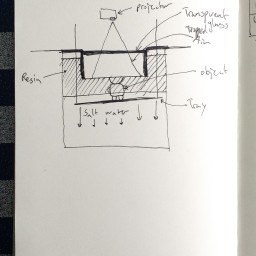 projector
Transparent
glass
film
Resin
object
Tray
Salt water